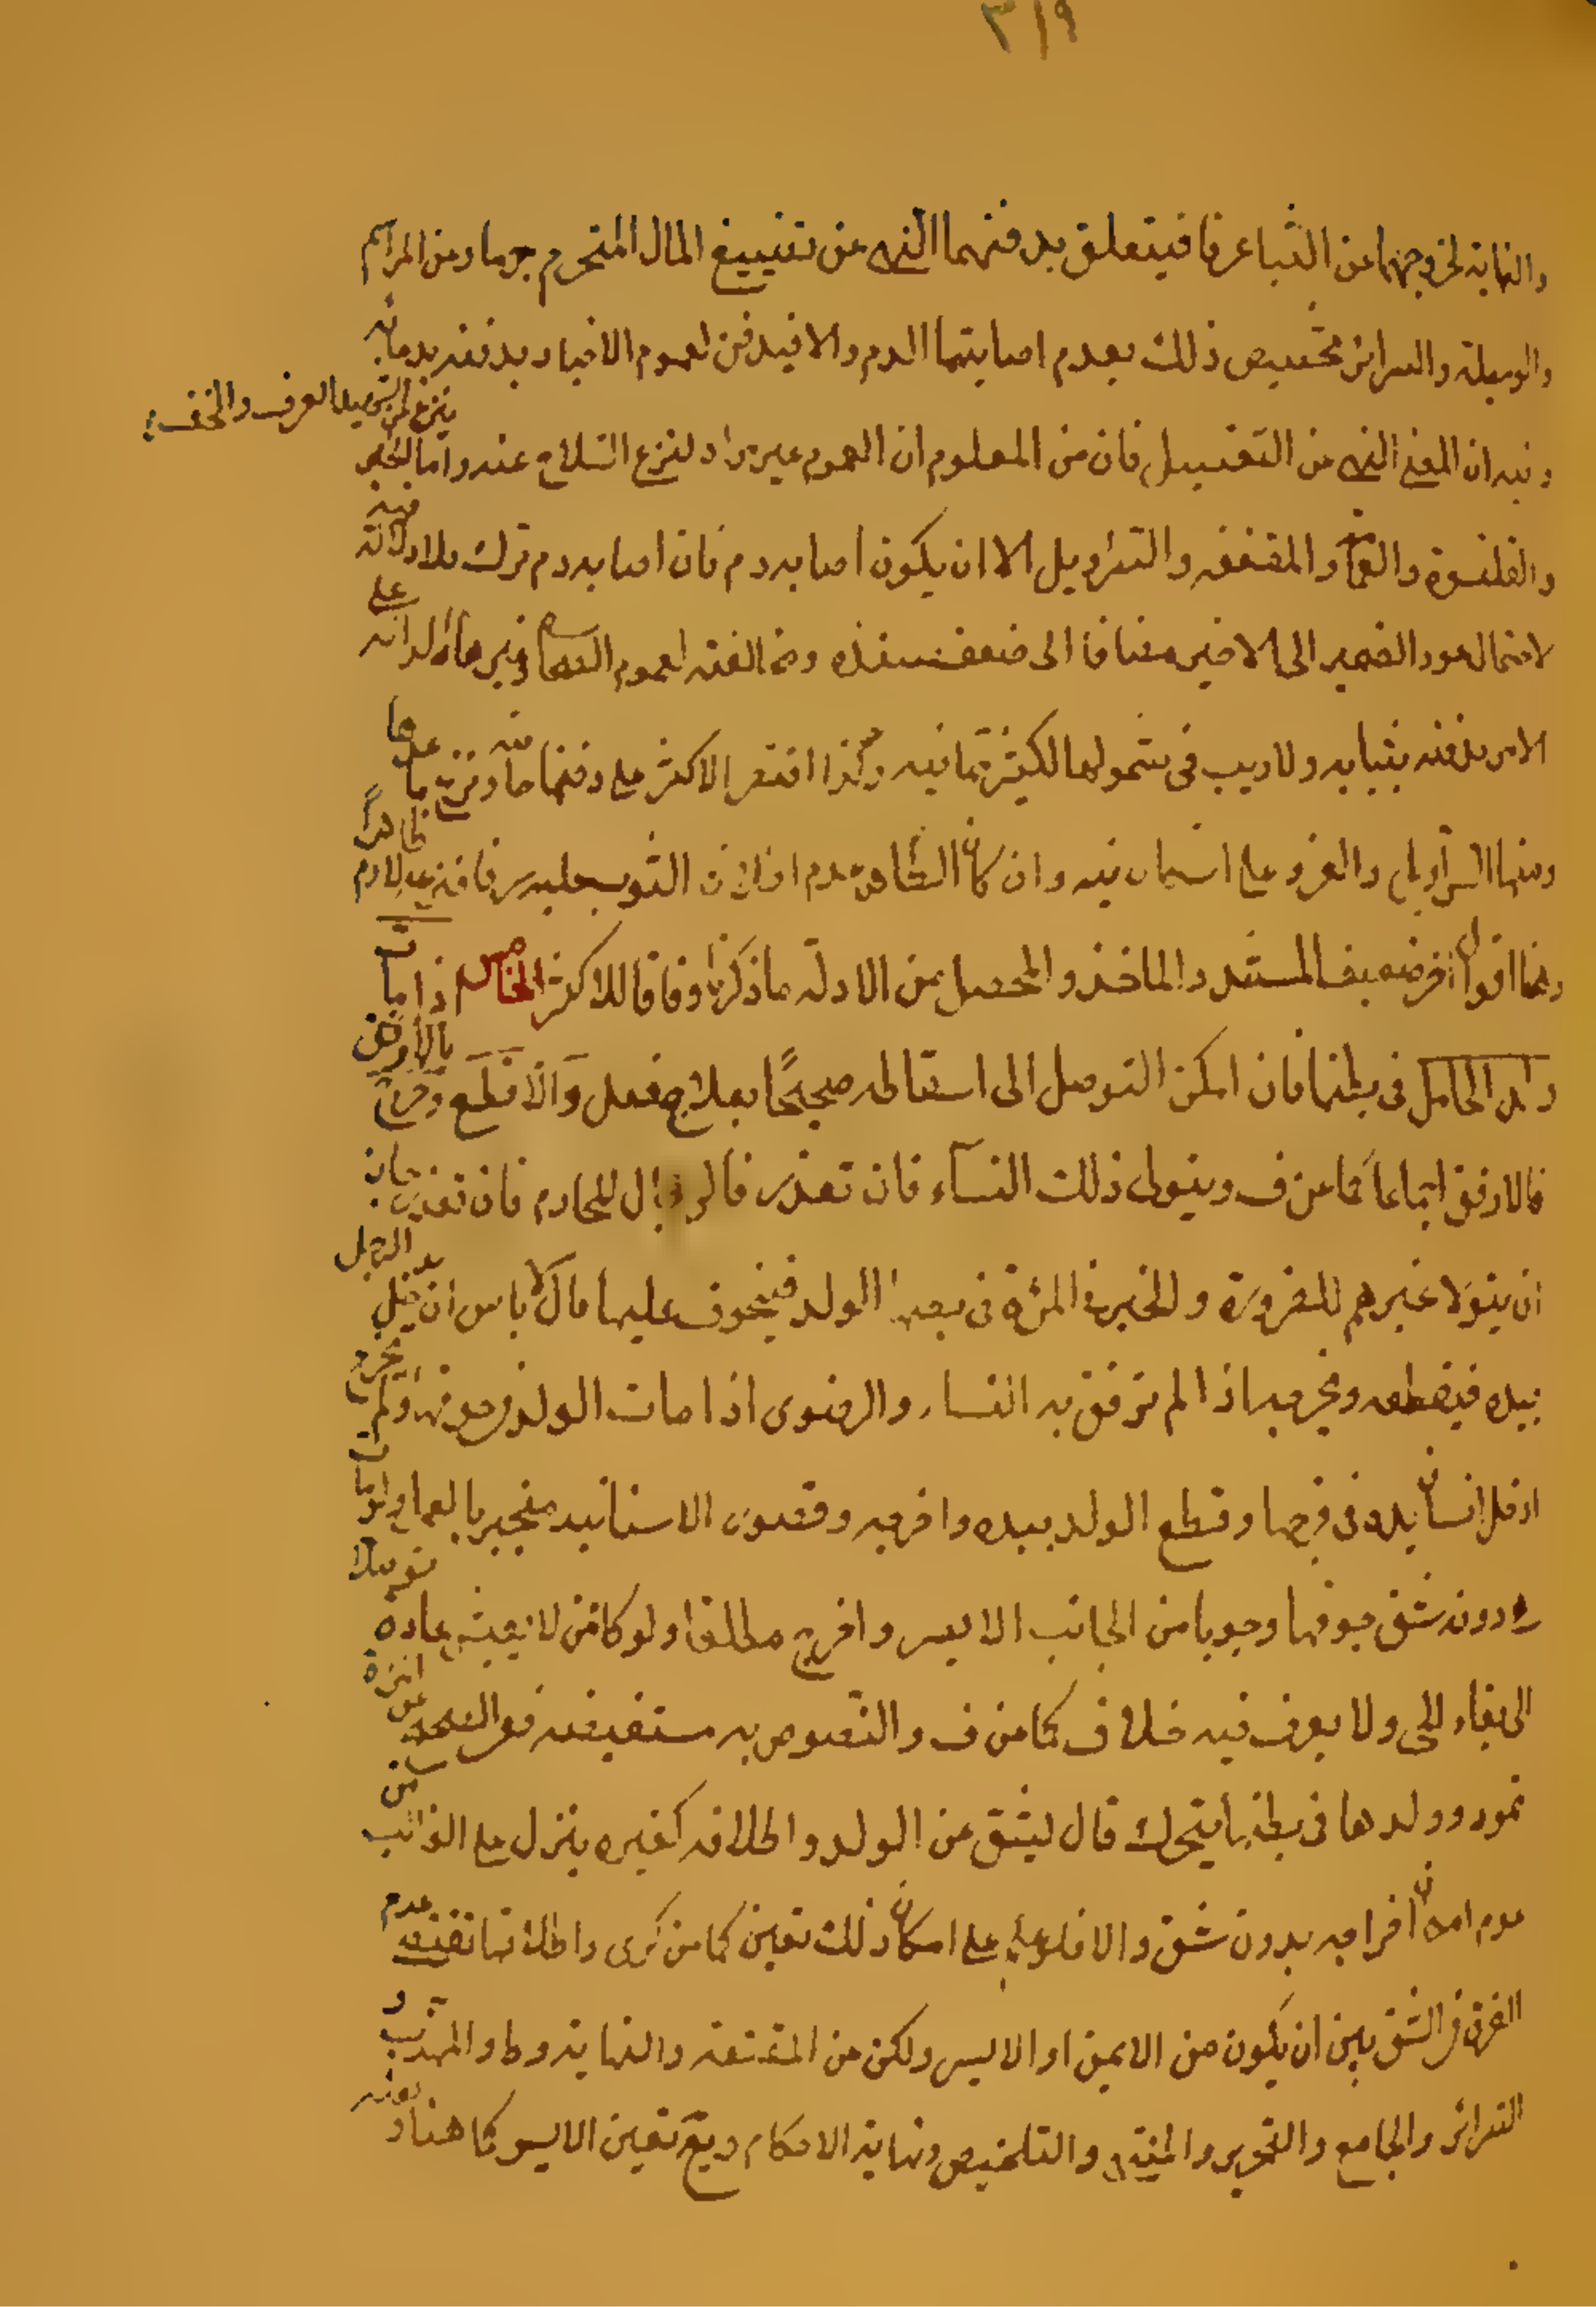 ٣١٩
والنهاية لخروجهما عن الثياب عرفا فيتعلق بدفنهما النهي عن تضييع المال المتحرم جوما وعن المراسم
والوسيلة والسرائر تخصيص ذلك بعدم اصابتهما الدم والا فيدفن لعموم الاخبار بدفنه بدمائه
ينزع التفصيل العرف والخف
وفيه ان المغني النهي عن التغسيل فان من المعلوم ان العموم غير مراد لنزع السلاح عنه واما الخبر
والقلنسوة والعمامة والمنطقة والسراويل الا ان يكون اصابه دم فان اصابه دم ترك فلا دلالة فيه
لاحتمال عود الضمير الى الاخير مضافا الى ضعف سنده ومخالفته لعموم الصحاح وغيرها الدالة على
الامر بدفنه بثيابه ولا ريب في شمولها لكثير مما فيه وكذا اقتصر الاكثر على دفنها ونزع ما عداها
ومنها السراويل والفرو على اشكال فيه وان كان الظاهر عدم اطلاق الثوب عليه عرفا فينزع للاصل ظاهراً
وهنا اقوال اخر ضعيف المستند والماخذ والمحصل من الادلة ما ذكرنا وفاقا للاكثر الخامس اذا مات
ولد الحامل في بطنها فان امكن التوصل الى اسقاطه صحيحًا بعلاج فعل والا قطع وخرج بالارفق
فالارفق اجماعا كما عن ف ويتولى ذلك النساء فان تعذر فالرجال المحارم فان تعذر جاز
ان يتولا غيرهم للضرورة وللخبر في المرئة في بطنها الولد فيتخوف عليها قال لا باس ان يدخل الرجل
بيده فيقطعه ويخرجه اذا لم ترفق به النساء والرضوى اذا مات الولد في جوفها ولم يخرج
ادخل انسان يده في فرجها وقطع الولد بيده واخرجه وقصور الاسانيد منجبر بالعمل ولو ماتت
هي دونه شق جوفها وجوبا من الجانب الايسر واخرج مطلقا ولو كان ممن لا يعيش عادة توصلا
الى بقاء الحي ولا يعرف فيه خلاف كما عن ف والنصوص به مستفيضة ففي الصحيح عن المرئة
تموت وولدها في بطنها يتحرك قال ليشق عن الولد واطلاقه كغيره ينزل على الغالب من
عدم امكان اخراجه بدون شق والا فلو علم على امكان ذلك تعين كما عن كرى واطلاقها تقتضي عدم
الفرق في الشق بين ان يكون من الايمن او الايسر ولكن عن المقنعة والنهاية وط والمهذب و
السرائر والجامع والتحرير والمنتهى والتلخيص ونهاية الاحكام ويع تعيين الايسر كما هنا و